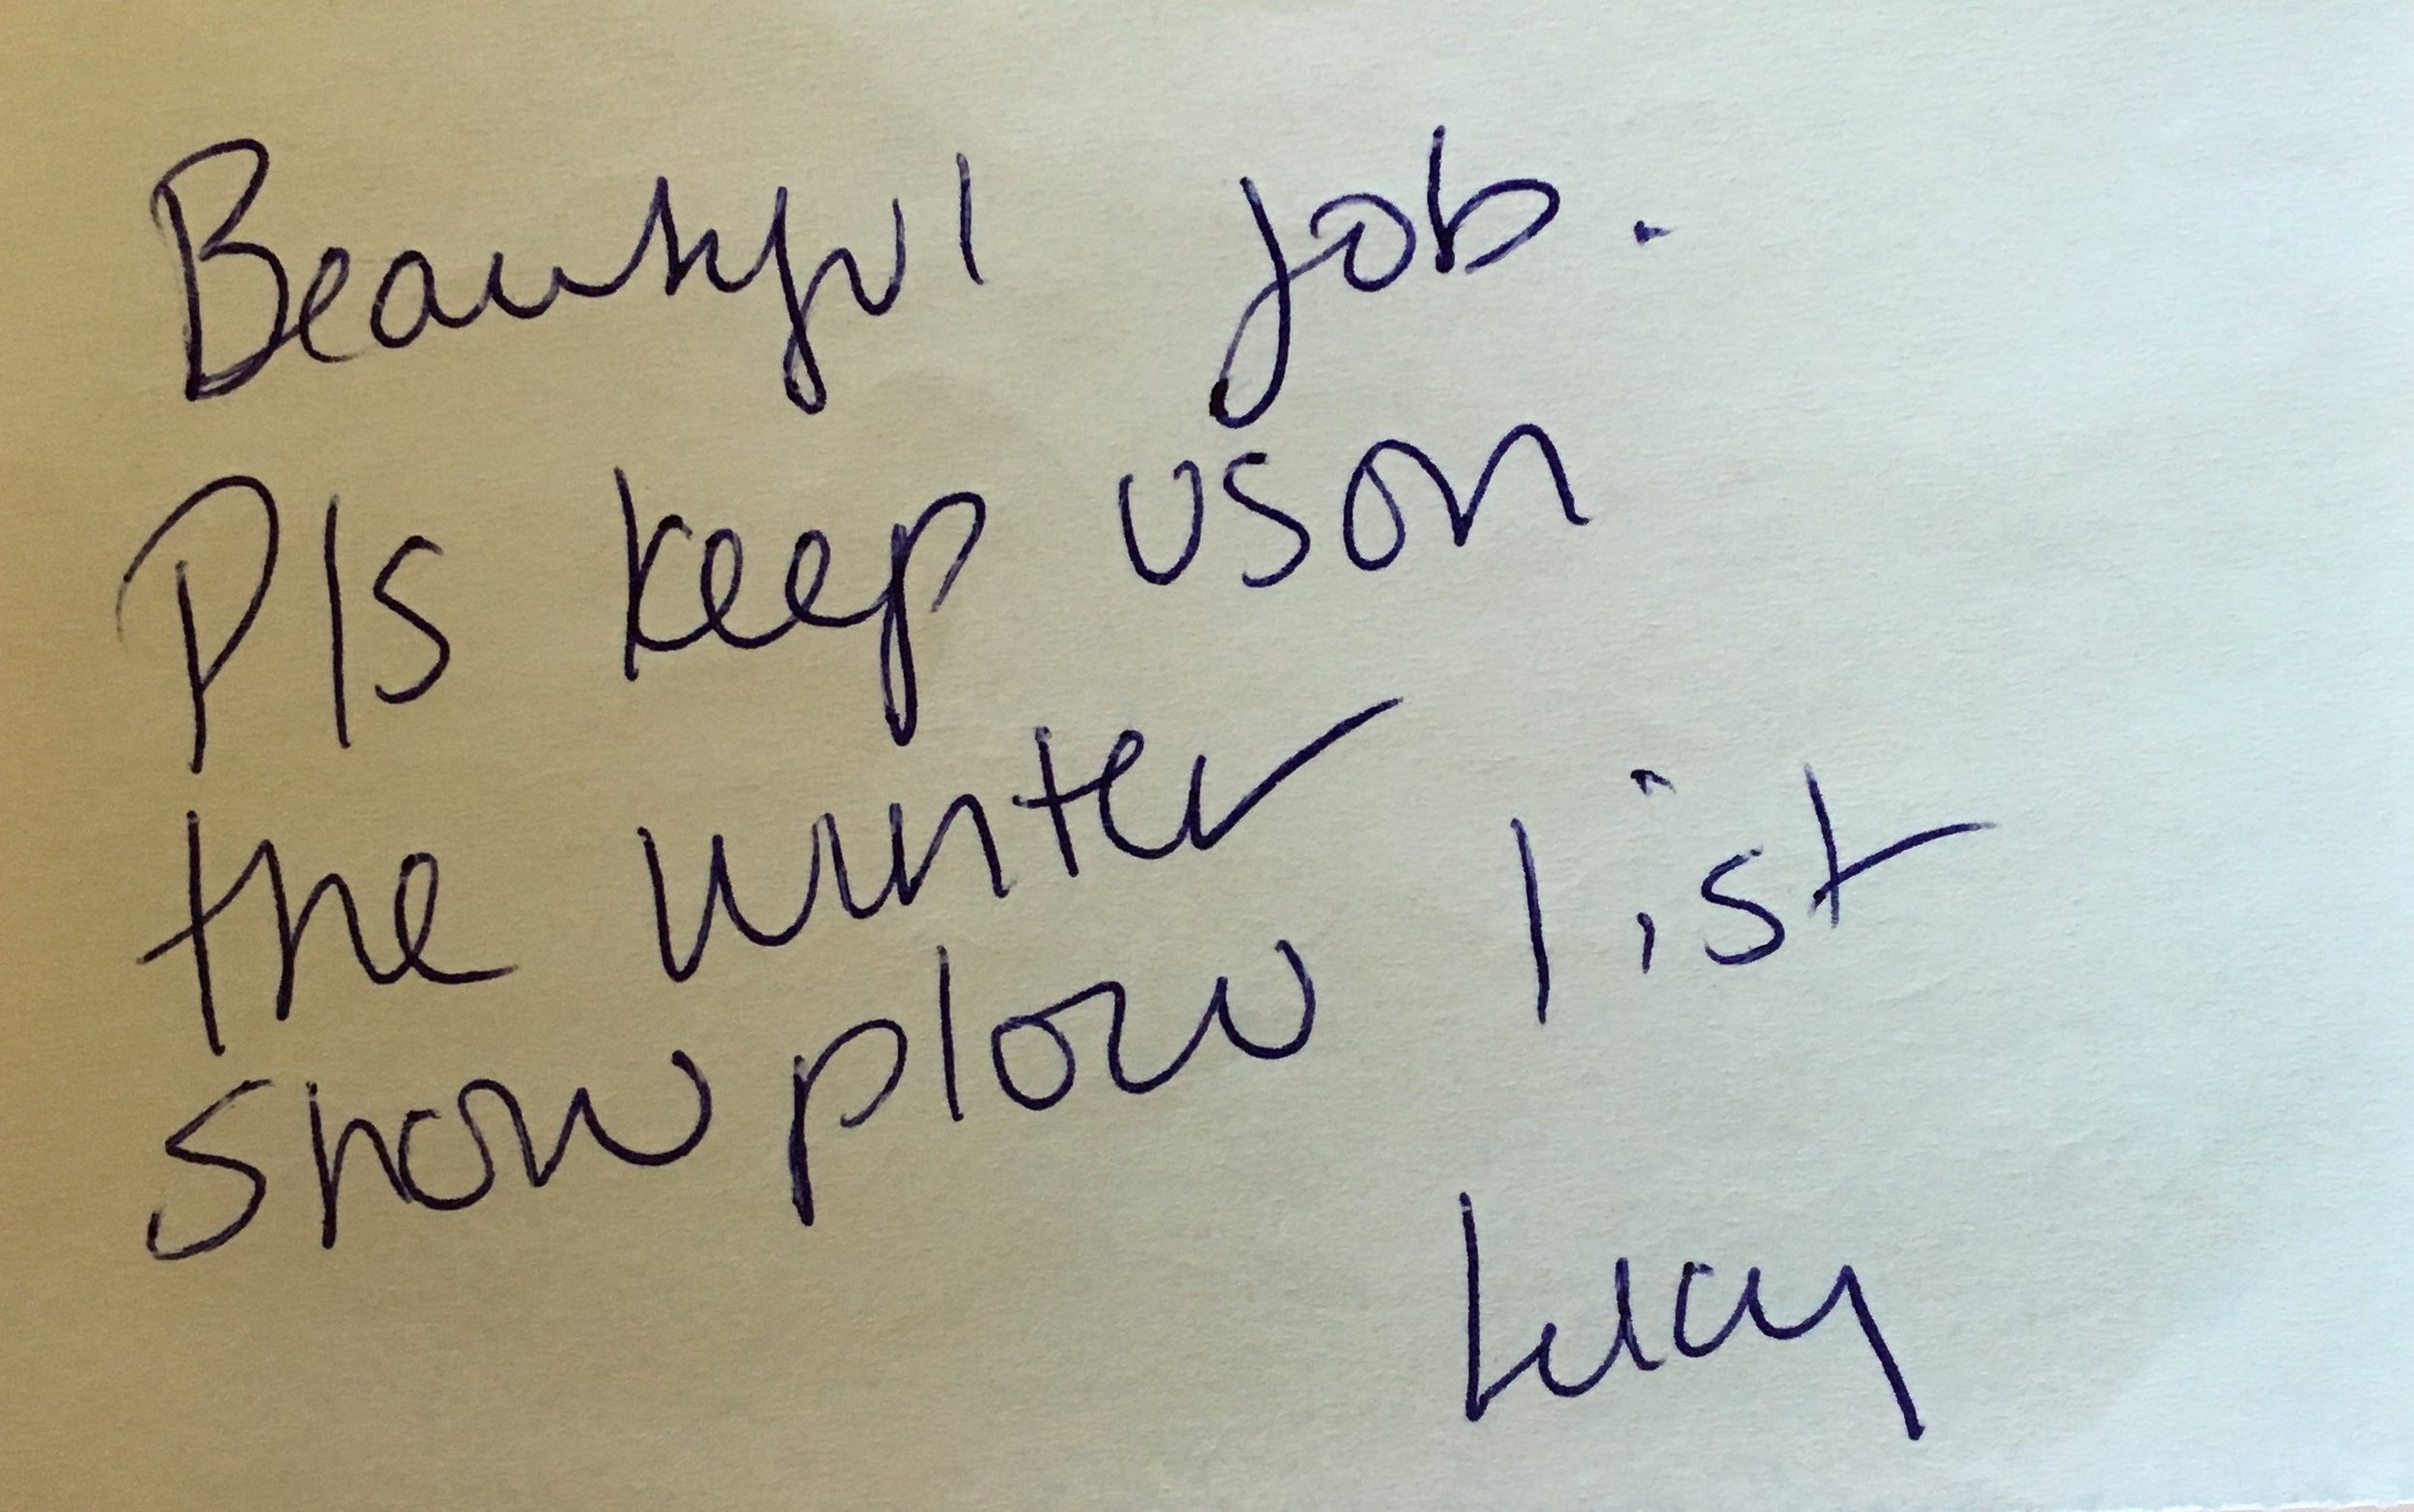 Beautiful job.
Pls keep us on
the winter
snow plow list
Lucy